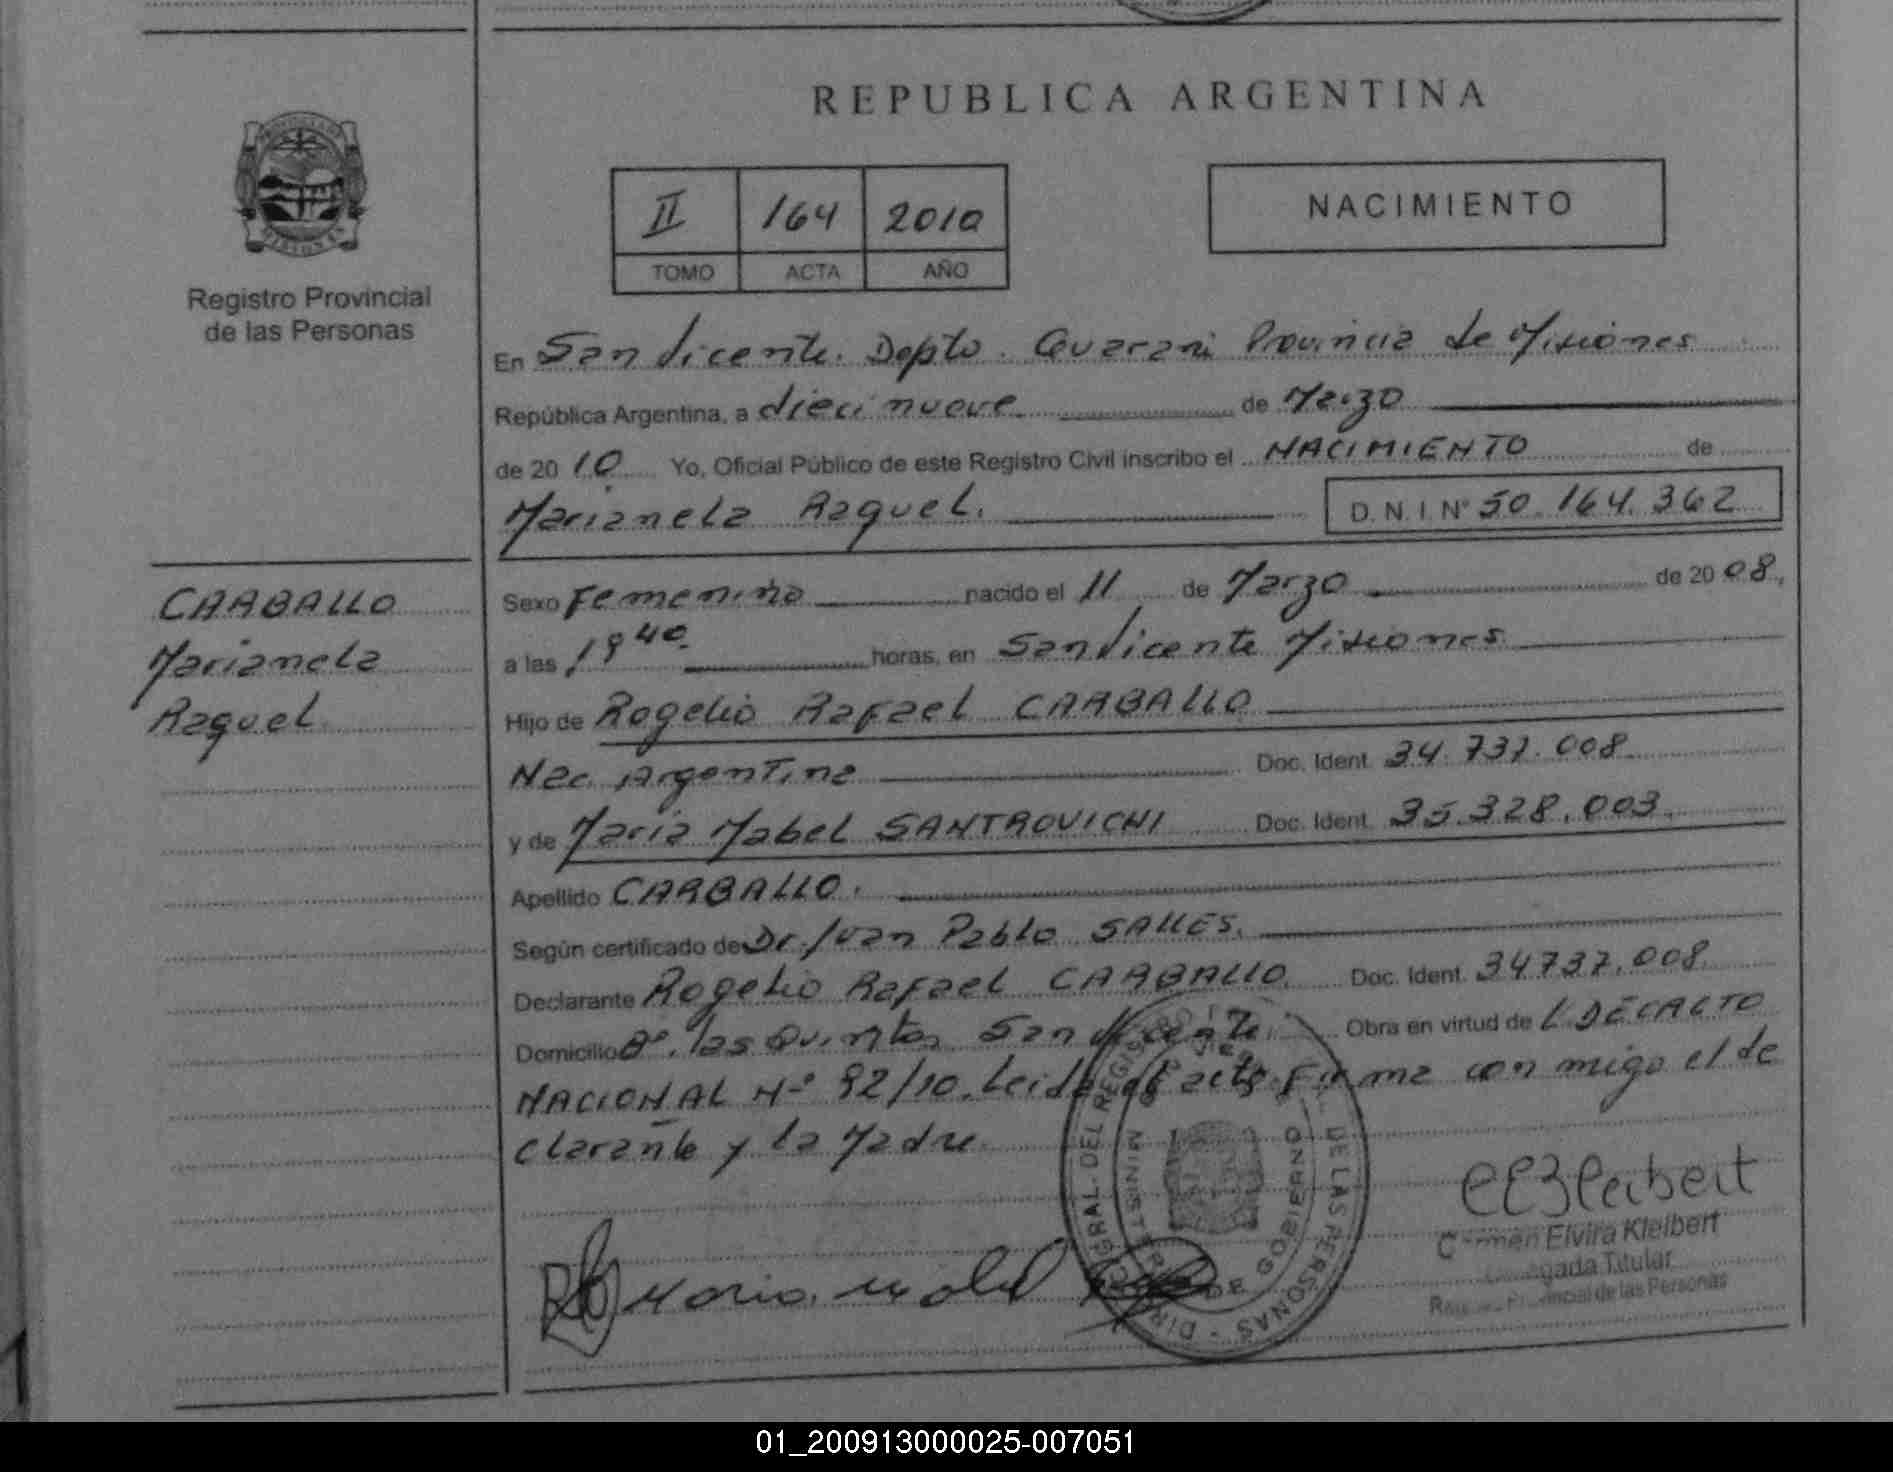 REPUBLICA ARGENTINA
II 164 2010
TOMO ACTA AÑO
NACIMIENTO
Registro Provincial
de las Personas
En San Vicente. Depto. Guarani Provincia de Misiones
República Argentina, a dieci nueve de Marzo
de 20 10 Yo, Oficial Público de este Registro Civil inscribo el NACIMIENTO de
Marianela Raquel. D.N.I.Nº 50.164.362
CARBALLO
Marianela
Raquel
Sexo Femenino nacido el 11 de Marzo de 20 08,
a las 19 40. horas, en San Vicente Misiones
Hijo de Rogelio Rafael CARBALLO
Nac. Argentina Doc. Ident. 34.737.008
y de Maria Mabel SANTROVICHI Doc. Ident. 35.328.003.
Apellido CARBALLO.
Según certificado de Dr. Juan Pablo SALLES.
Declarante Rogelio Rafael CARBALLO. Doc. Ident. 34737.008
Domicilio Bº. las Quintas San Vicente. Obra en virtud de L DECALTO
NACIONAL Nº 92/10. Leida el acta Firma con migo el de
clarante y la Madre.
DIR. GRAL. DEL REGISTRO DE LAS PERSONAS
MINISTERIO DE GOBIERNO
Maria mabel
CEKleibert
Carmen Elvira Kleibert
Delegada Titular
Registro Provincial de las Personas
01_200913000025-007051